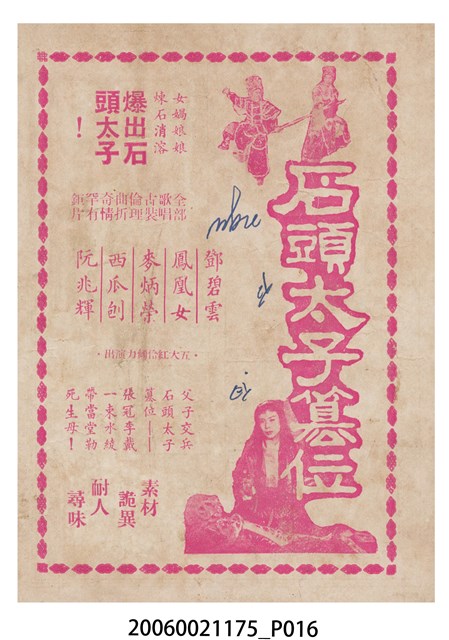 石頭太子篡位
女媧娘娘
煉石消溶
爆出石
頭太子！
全部
歌唱
古裝
倫理
曲折
奇情
罕有
鉅片
鄧碧雲
鳳凰女
麥炳榮
西瓜刨
阮兆輝
・五大紅伶力演出・
父子交兵
石頭太子
篡位——
張冠李戴
一束水綾
帶當堂勒
死生母！
素材
詭異
耐人
尋味
20060021175_P016